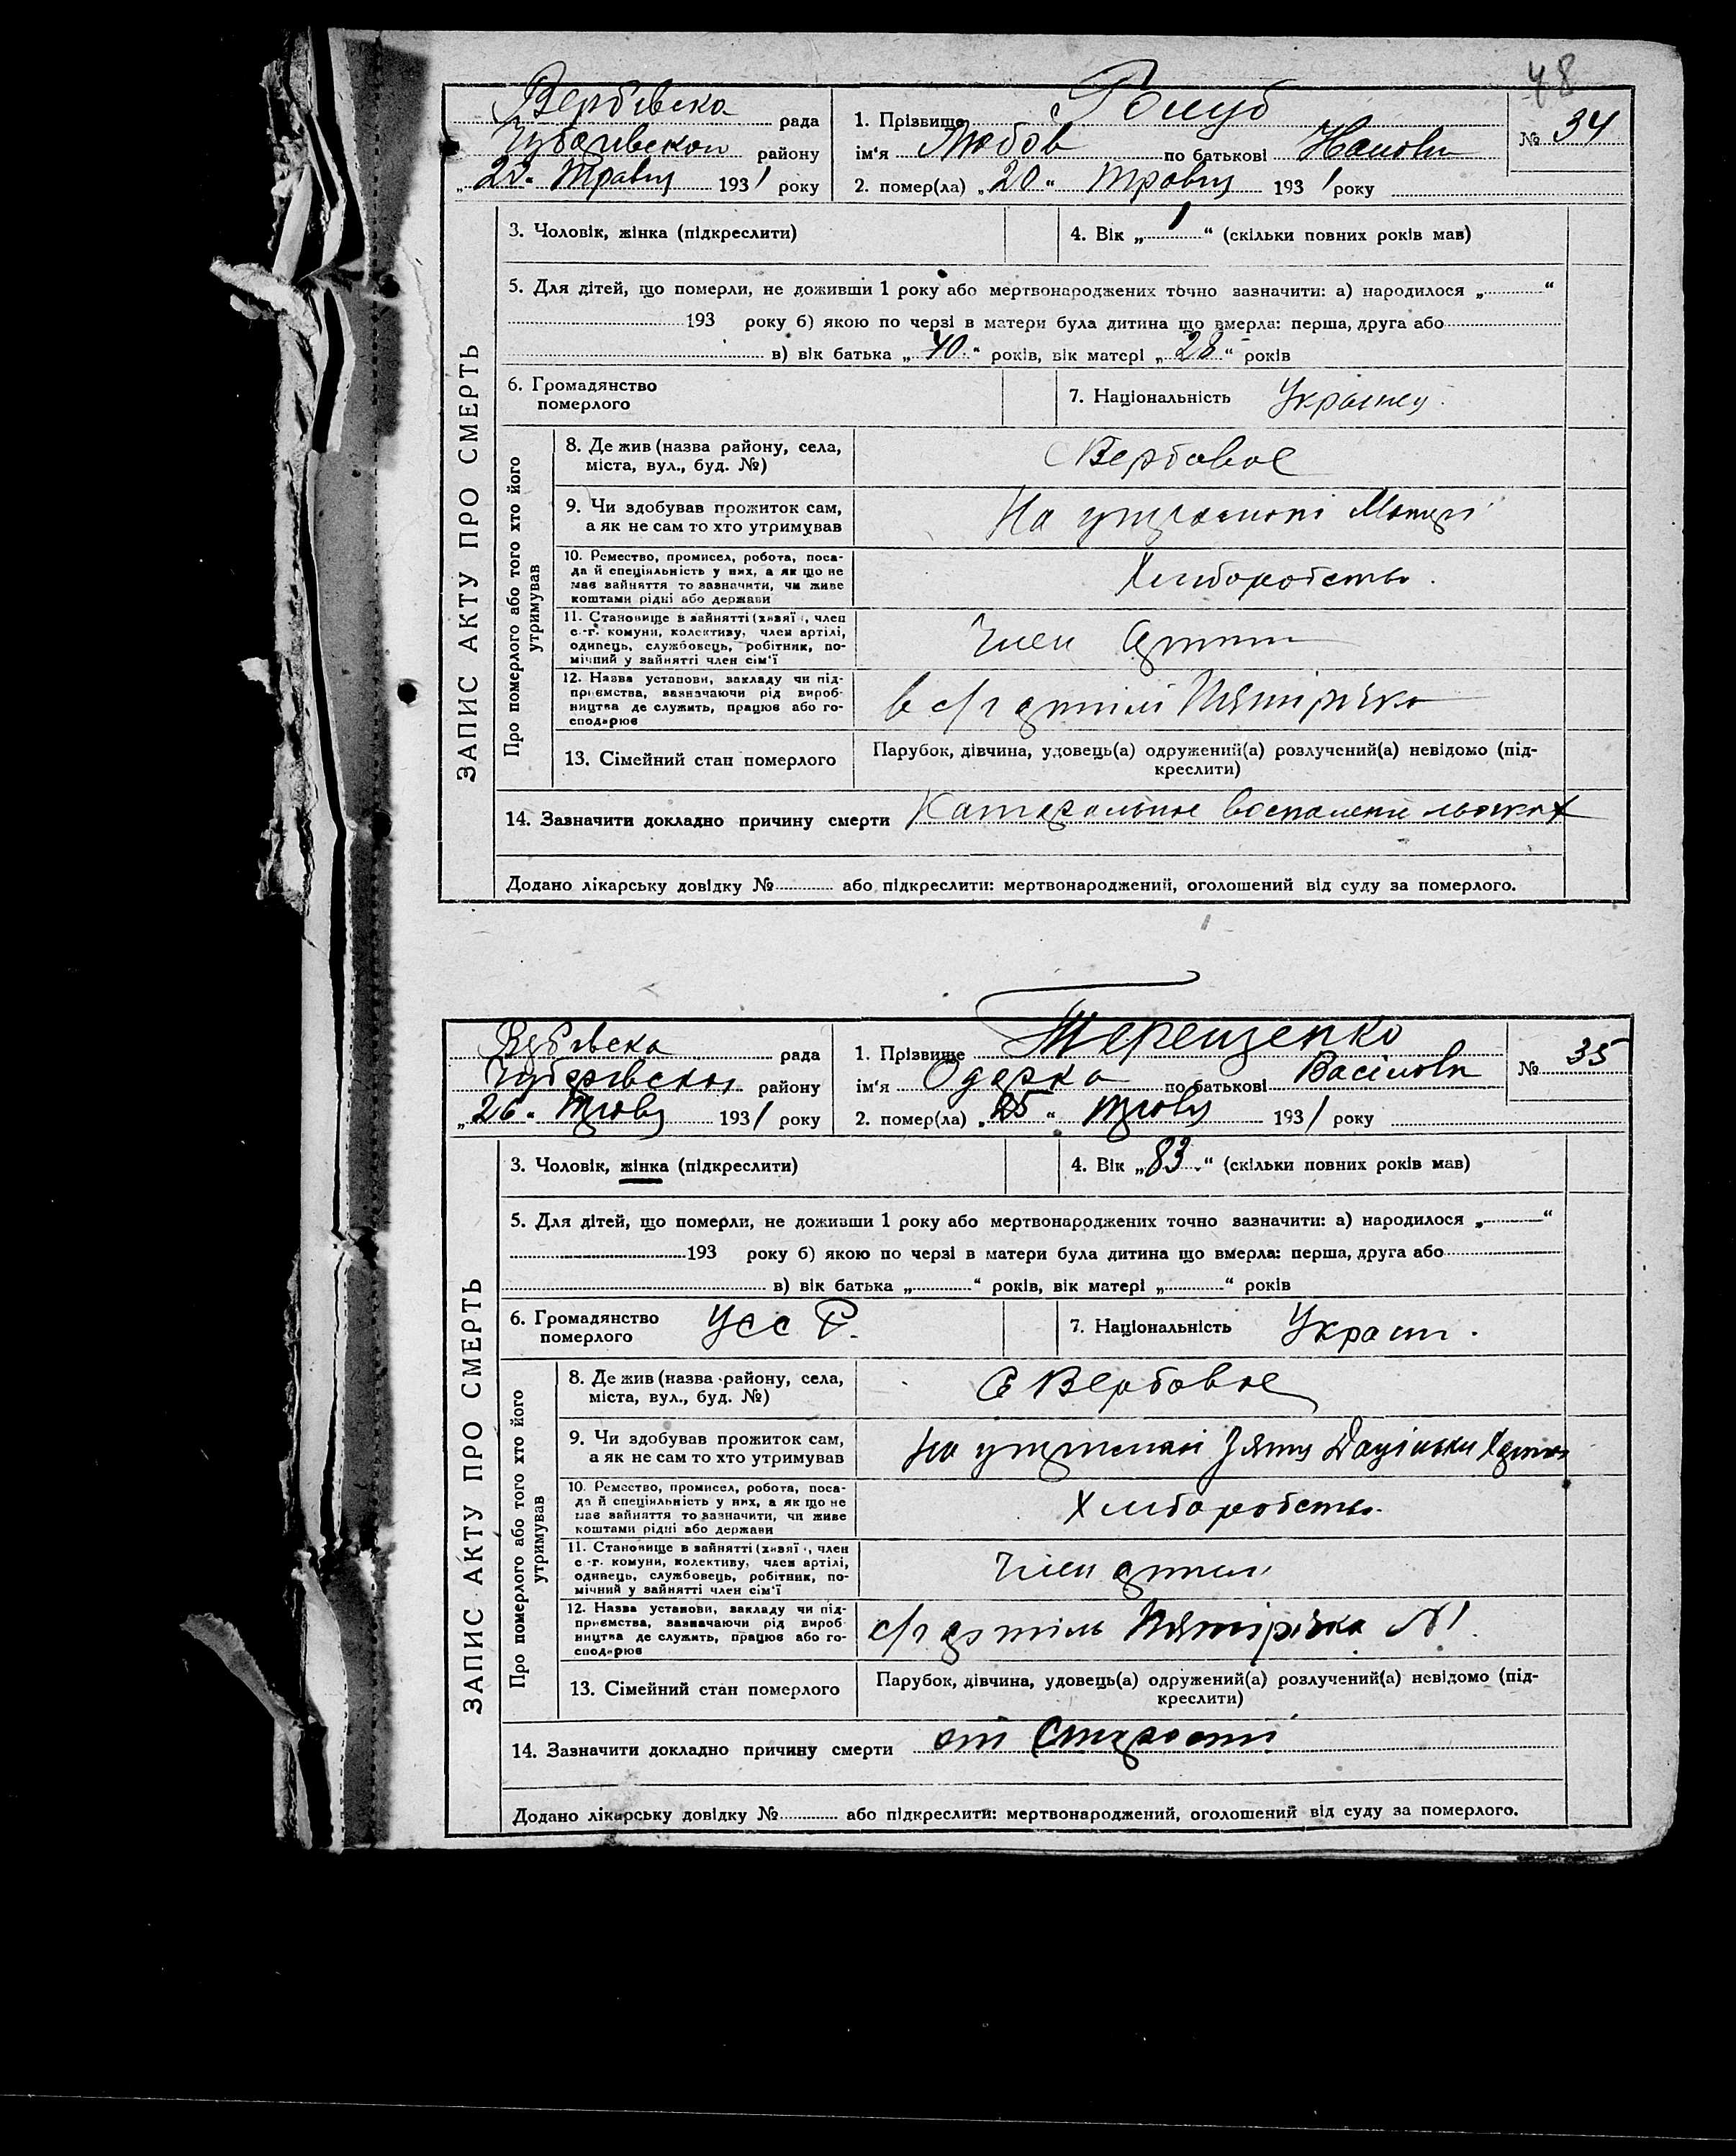 48
Вербівска рада
Чубарівском району
„23“ Травня 1931 року
1. Прізвище Голуб
ім‘я Любов по батькові
2. помер(ла) „20“ Травня 1931 року
№ 34
ЗАПИС АКТУ ПРО СМЕРТЬ
3. Чоловік, жінка (підкреслити)
4. Вік „1“ (скільки повних років мав)
5. Для дітей, що померли, не доживши 1 року або мертвонароджених точно зазначити: а) народилося „ “
193 року б) якою по черзі в матери була дитина що вмерла: перша, друга або
в) вік батька „40“ років, вік матері „28“ років
6. Громадянство
померлого
7. Національність
Про померлого або того хто його
утримував
8. Де жив (назва району, села,
міста, вул., буд. №)
Вербовое
9. Чи здобував прожиток сам,
а як не сам то хто утримував
На утриманні Матері
10. Ремество, промисел, робота, поса-
да й спеціяльність у них, а як що не
має зайняття то зазначити, чи живе
коштами рідні або держави
Хліборобство.
11. Становище в зайнятті (хазяї , член
с.-г. комуни, колективу, член артілі,
одинець, службовець, робітник, по-
мічний у зайнятті член сім‘ї
Член Артілі
12. Назва установи, закладу чи під-
приємства, зазначаючи рід вироб-
ництва де служить, працює або го-
сподарює
в с/г артілі Пятирічка
13. Сімейний стан померлого
Парубок, дівчина, удовець(а) одружений(а) розлучений(а) невідомо (під-
креслити)
14. Зазначити докладно причину смерти Катаральное воспаление льогких
Додано лікарську довідку № або підкреслити: мертвонароджений, оголошений від суду за померлого.
Вербівска рада
Чубарівском району
„26“ Травня 1931 року
1. Прізвище Терещенко
ім‘я Одарка по батькові Василовн
2. помер(ла) „25“ Травня 1931 року
№ 35
ЗАПИС АКТУ ПРО СМЕРТЬ
3. Чоловік, жінка (підкреслити)
4. Вік „83“ (скільки повних років мав)
5. Для дітей, що померли, не доживши 1 року або мертвонароджених точно зазначити: а) народилося „ “
193 року б) якою по черзі в матери була дитина що вмерла: перша, друга або
в) вік батька „ “ років, вік матері „ “ років
6. Громадянство
померлого
УССР.
7. Національність Украин.
Про померлого або того хто його
утримував
8. Де жив (назва району, села,
міста, вул., буд. №)
С Вербовое
9. Чи здобував прожиток сам,
а як не сам то хто утримував
На утриманні Зятя
10. Ремество, промисел, робота, поса-
да й спеціяльність у них, а як що не
має зайняття то зазначити, чи живе
коштами рідні або держави
Хліборобство.
11. Становище в зайнятті (хазяї , член
с.-г. комуни, колективу, член артілі,
одинець, службовець, робітник, по-
мічний у зайнятті член сім‘ї
Член артілі
12. Назва установи, закладу чи під-
приємства, зазначаючи рід вироб-
ництва де служить, працює або го-
сподарює
с/г артіль Пятирічка №1.
13. Сімейний стан померлого
Парубок, дівчина, удовець(а) одружений(а) розлучений(а) невідомо (під-
креслити)
14. Зазначити докладно причину смерти от Старости
Додано лікарську довідку № або підкреслити: мертвонароджений, оголошений від суду за померлого.